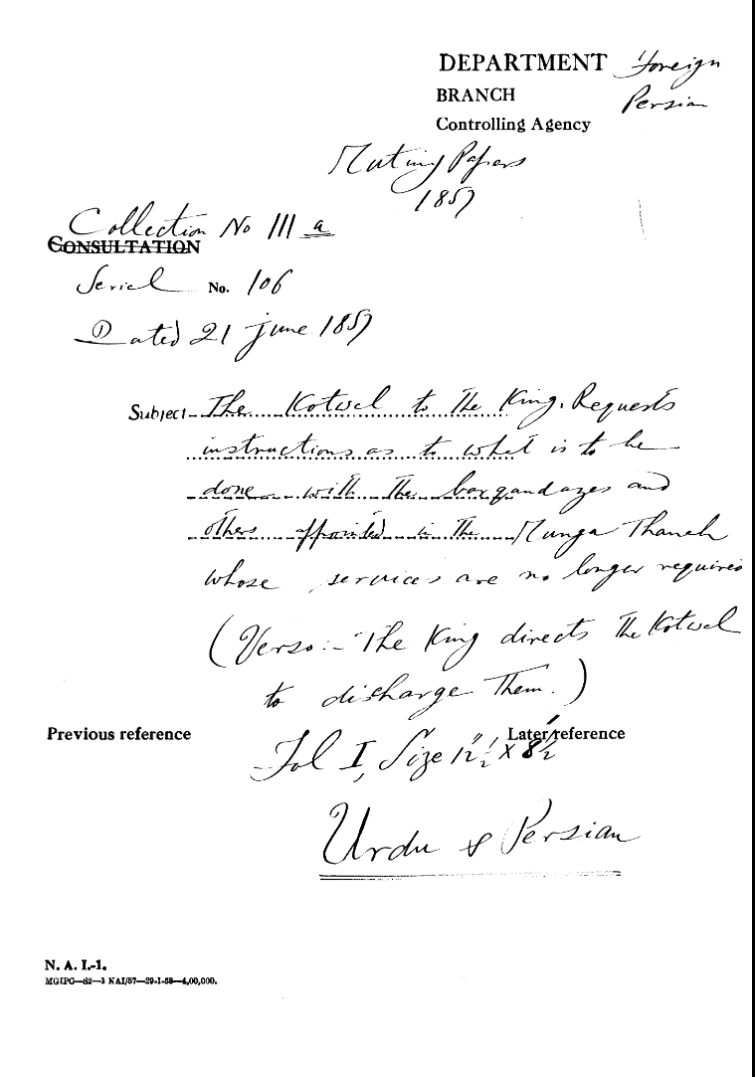 DEPARTMENT Foreign
BRANCH Persian
Controlling Agency
Mutiny Papers
1857
Collection No III a
CONSULTATION
Serial No. 106
Dated 21 June 1857
Subject The Kotwal to the King. Requests
instructions as to what is to be
done with the barqandazes and
others appointed in the Munga Thanah
whose services are no longer required
(Verso:- The King directs the Kotwal
to discharge them.)
Previous reference
Later reference
Fol I, Size 12½" x 8½"
Urdu & Persian
N. A. I.-1.
MGIPC—82—3 NAI/57—29-1-58—4,00,000.